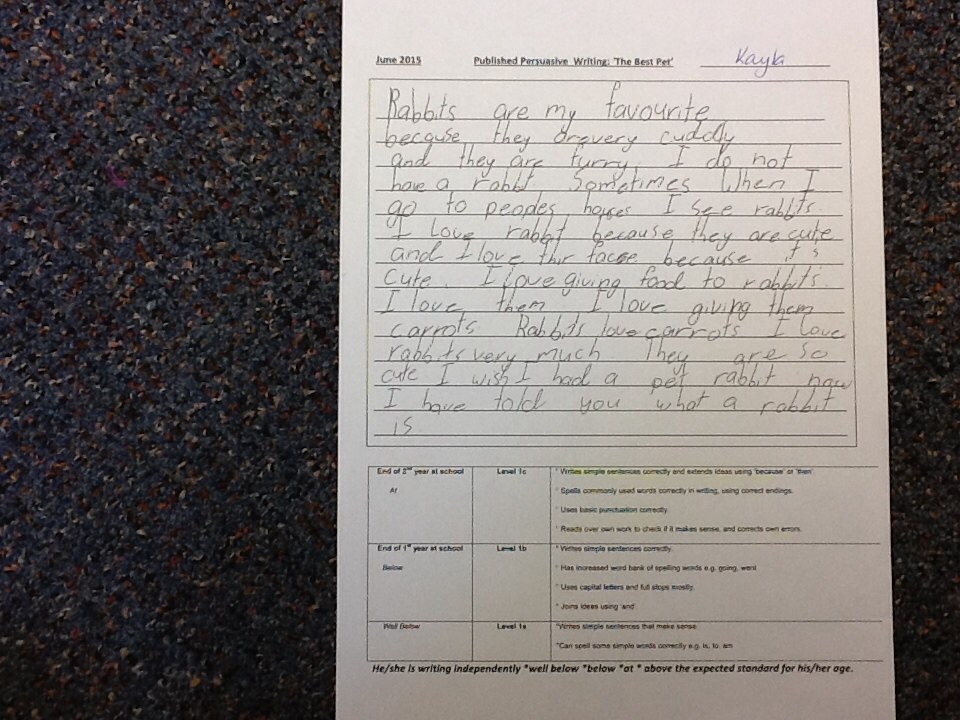 June 2015 Published Persuasive Writing: 'The Best Pet' Kayla
Rabbits are my favourite
because they are very cuddly
and they are furry. I do not
have a rabbit. Sometimes When I
go to peoples houses I see rabbits.
I Love rabbit because they are cute
and I love thir because it's
cute. I love giving food to rabbits.
I love them I love giving them
carrots. Rabbits love carrots I love
rabbits very much They are so
cute I wish I had a pet rabbit now
I have told you what a rabbit
is.
End of 2nd year at school Level 1c * Writes simple sentences correctly and extends ideas using 'because' or 'then'
At * Spells commonly used words correctly in writing, using correct endings.
* Uses basic punctuation correctly.
* Reads over own work to check if it makes sense, and corrects own errors.
End of 1st year at school Level 1b * Writes simple sentences correctly.
Below * Has increased word bank of spelling words e.g. going, went
* Uses capital letters and full stops mostly.
* Joins ideas using 'and'
Well Below Level 1a *Writes simple sentences that make sense.
*Can spell some simple words correctly e.g. is, to, am
He/she is writing independently *well below *below *at * above the expected standard for his/her age.